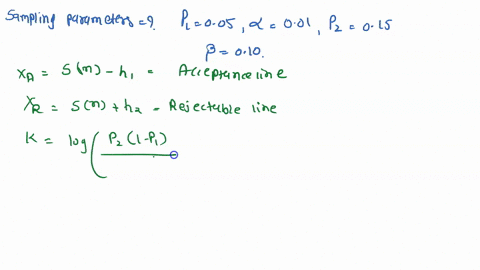 Sampling parameters = ? P₁ = 0.05, α = 0.01, P₂ = 0.15
β = 0.10.
X_A = S(n) - h₁ = Acceptance line
X_R = S(n) + h₂ = Rejectable line
K = log( P₂ (1-P₁)